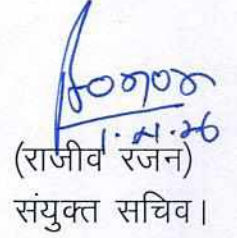 1.4.26
(राजीव रंजन)
संयुक्त सचिव।